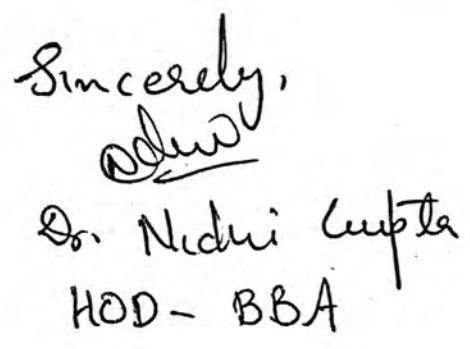 Sincerely,
Dr. Nidhi Gupta
HOD - BBA